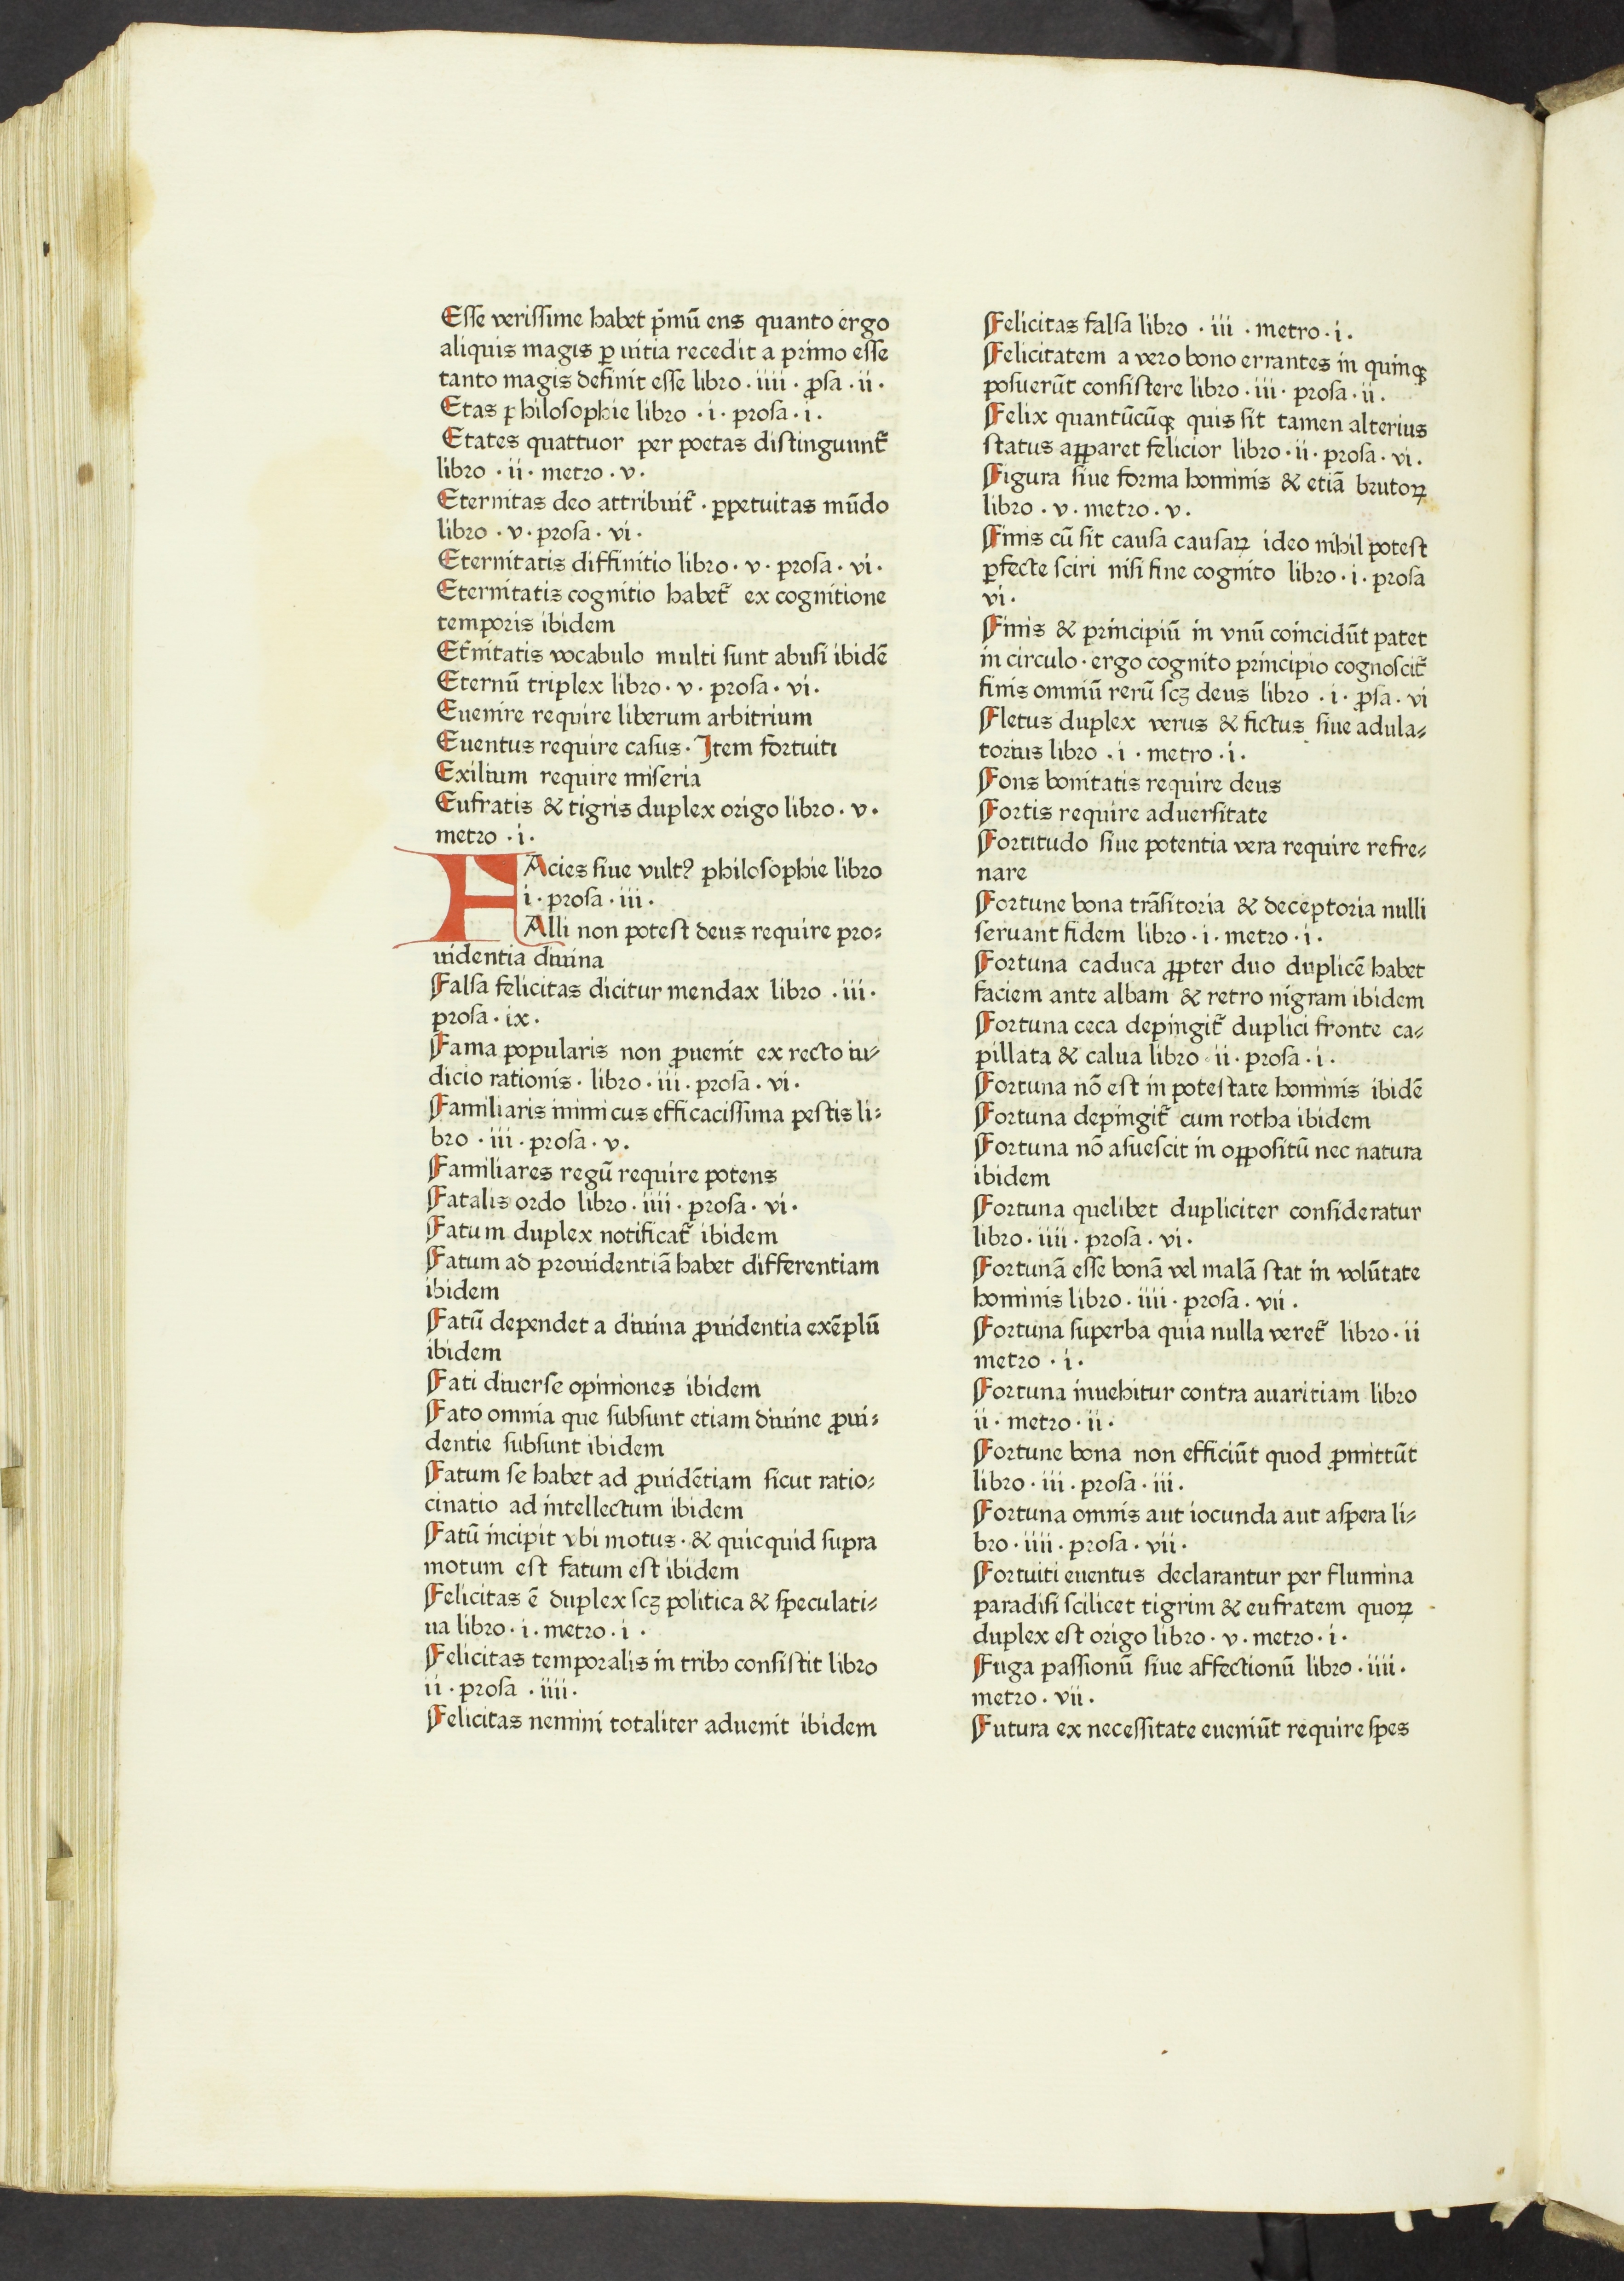 Esse verissime habet p̄mū ens quanto ergo
aliquis magis ꝑ uitia recedit a primo esse
tanto magis definit esse libro · iiii · ꝓsa · ii ·
Etas philosophie libro · i · prosa · i ·
Etates quattuor per poetas distinguunt᷑
libro · ii · metro · v ·
Eternitas deo attribuit᷑ · ꝑpetuitas mūdo
libro · v · prosa · vi ·
Eternitatis diffinitio libro · v · prosa · vi ·
Eternitatis cognitio habet᷑ ex cognitione
temporis ibidem
Et᷑nitatis vocabulo multi sunt abusi ibidē
Eternū triplex libro · v · prosa · vi ·
Euenire require liberum arbitrium
Euentus require casus · Item fortuiti
Exilium require miseria
Eufratis & tigris duplex origo libro · v ·
metro · i ·
FAcies siue vultꝰ philosophie libro
i · prosa · iii ·
Alli non potest deus require pro⸗
uidentia diuina
Falsa felicitas dicitur mendax libro · iii ·
prosa · ix ·
Fama popularis non ꝓuenit ex recto iu⸗
dicio rationis · libro · iii · prosa · vi ·
Familiaris inimicus efficacissima pestis li⸗
bro · iii · prosa · v ·
Familiares regū require potens
Fatalis ordo libro · iiii · prosa · vi ·
Fatum duplex notificat᷑ ibidem
Fatum ad prouidentiā habet differentiam
ibidem
Fatū dependet a diuina ꝓuidentia exēplū
ibidem
Fati diuerse opiniones ibidem
Fato omnia que subsunt etiam diuine ꝓui⸗
dentie subsunt ibidem
Fatum se habet ad ꝓuidētiam sicut ratio⸗
cinatio ad intellectum ibidem
Fatū incipit vbi motus · & quicquid supra
motum est fatum est ibidem
Felicitas ē duplex scꝫ politica & speculati⸗
ua libro · i · metro · i ·
Felicitas temporalis in tribꝰ consistit libro
ii · prosa · iiii ·
Felicitas nemini totaliter aduenit ibidem
Felicitas falsa libro · iii · metro · i ·
Felicitatem a vero bono errantes in quinqꝫ
posuerūt consistere libro · iii · prosa · ii ·
Felix quantūcūqꝫ quis sit tamen alterius
status apparet felicior libro · ii · prosa · vi ·
Figura siue forma hominis & etiā brutoꝝ
libro · v · metro · v ·
Finis cū sit causa causaꝝ ideo nihil potest
ꝑfecte sciri nisi fine cognito libro · i · prosa
vi ·
Finis & principiū in vnū coincidūt patet
in circulo · ergo cognito principio cognoscit᷑
finis omniū rerū scꝫ deus libro · i · ꝓsa · vi
Fletus duplex verus & fictus siue adula⸗
torius libro · i · metro · i ·
Fons bonitatis require deus
Fortis require aduersitate
Fortitudo siue potentia vera require refre⸗
nare
Fortune bona trāsitoria & deceptoria nulli
seruant fidem libro · i · metro · i ·
Fortuna caduca ꝓpter duo duplicē habet
faciem ante albam & retro nigram ibidem
Fortuna ceca depingit᷑ duplici fronte ca⸗
pillata & calua libro · ii · prosa · i ·
Fortuna nō est in potestate hominis ibidē
Fortuna depingit᷑ cum rotha ibidem
Fortuna nō asuescit in oppositū nec natura
ibidem
Fortuna quelibet dupliciter consideratur
libro · iiii · prosa · vi ·
Fortunā esse bonā vel malā stat in volūtate
hominis libro · iiii · prosa · vii ·
Fortuna superba quia nulla veret᷑ libro · ii
metro · i ·
Fortuna inuehitur contra auaritiam libro
ii · metro · ii ·
Fortune bona non efficiūt quod ꝓmittūt
libro · iii · prosa · iii ·
Fortuna omnis aut iocunda aut aspera li⸗
bro · iiii · prosa · vii ·
Fortuiti euentus declarantur per flumina
paradisi scilicet tigrim & eufratem quoꝝ
duplex est origo libro · v · metro · i ·
Fuga passionū siue affectionū libro · iiii ·
metro · vii ·
Futura ex necessitate eueniūt require spes